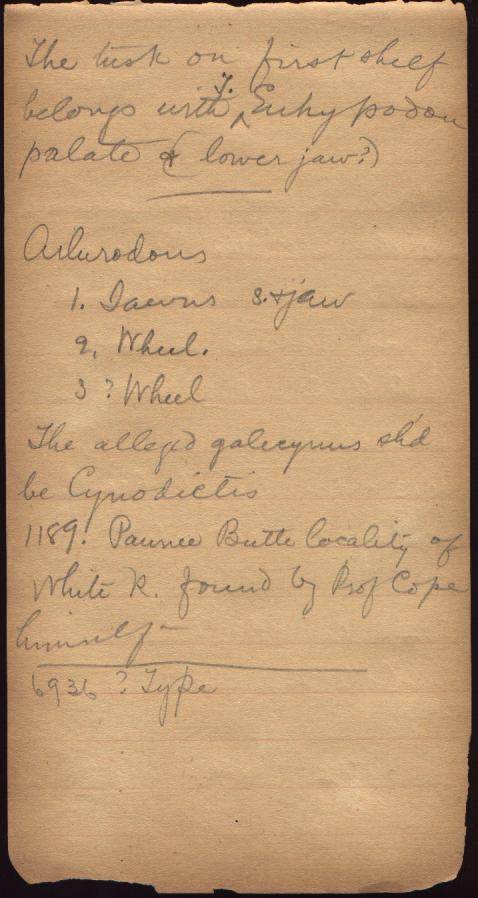 The tusk on first shelf
belongs with T. Euhypodon
palate & (lower jaw?)
Aelurodons
1. Saevus s. & jaw
2. Wheel.
3 ? Wheel
The alleged galecynus sh'd
be Cynodictis
1189! Pawnee Butte locality of
White R. found by Prof Cope
himself
6936 ? Type